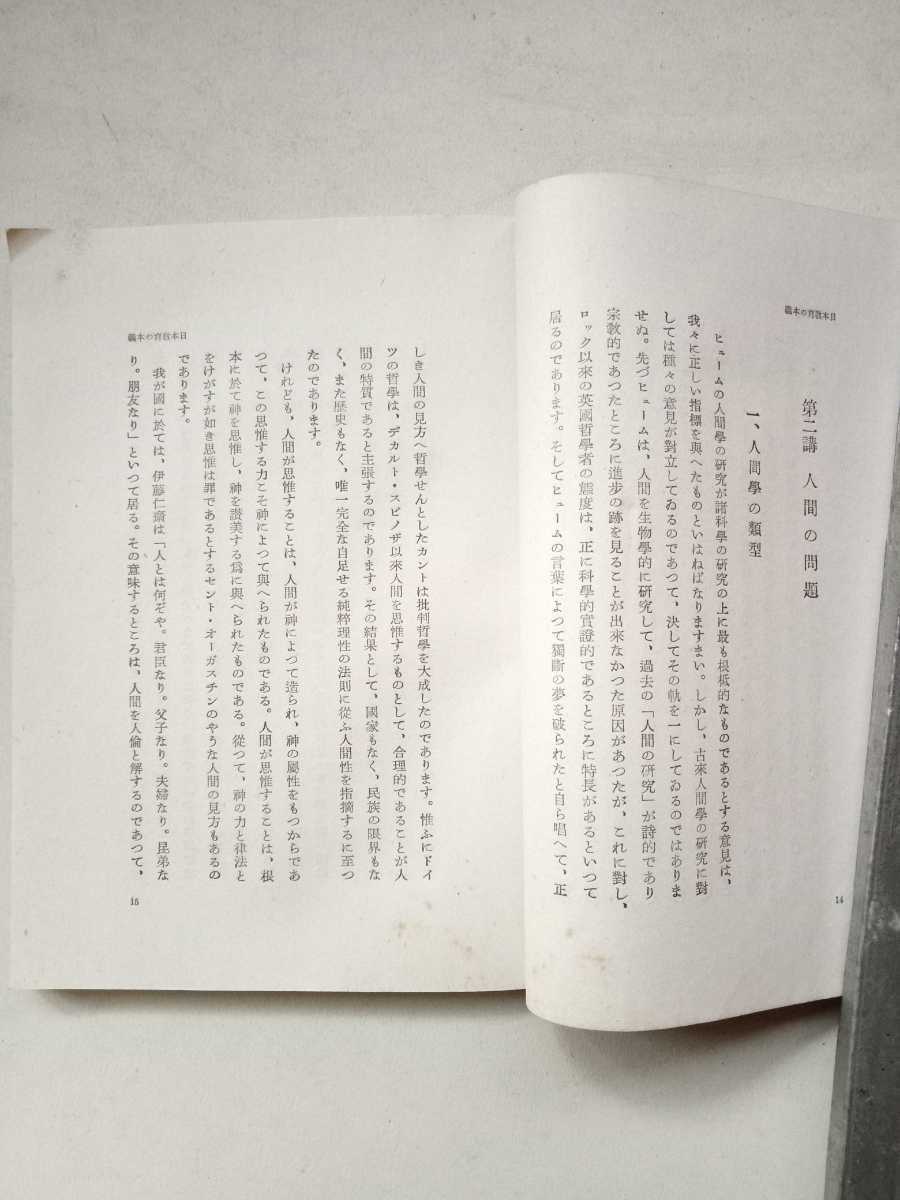 日本教育の本義
第二講　人間の問題
一、人間學の類型
ヒュームの人間學の研究が諸科學の研究の上に最も根柢的なものであるとする意見は、
我々に正しい指標を與へたものといはねばなりますまい。しかし、古來人間學の研究に對
しては種々の意見が對立してゐるのであつて、決してその軌を一にしてゐるのではありま
せぬ。先づヒュームは、人間を生物學的に研究して、過去の「人間の研究」が詩的であり
宗教的であつたところに進步の跡を見ることが出來なかつた原因があつたが、これに對し、
ロック以來の英國哲學者の態度は、正に科學的實證的であるところに特長があるといつて
居るのであります。そしてヒュームの言葉によつて獨斷の夢を破られたと自ら唱へて、正
14
日本教育の本義
しき人間の見方へ哲學せんとしたカントは批判哲學を大成したのであります。惟ふにドイ
ツの哲學は、デカルト・スピノザ以來人間を思惟するものとして、合理的であることが人
間の特質であると主張するのであります。その結果として、國家もなく、民族の限界もな
く、また歷史もなく、唯一完全な自足せる純粹理性の法則に從ふ人間性を指摘するに至つ
たのであります。
けれども、人間が思惟することは、人間が神によつて造られ、神の屬性をもつからであ
つて、この思惟する力こそ神によつて與へられたものである。人間が思惟することは、根
本に於て神を思惟し、神を讃美する爲に與へられたものである。從つて、神の力と律法と
をけがすが如き思惟は罪であるとするセント・オーガスチンのやうな人間の見方もあるの
であります。
我が國に於ては、伊藤仁齋は「人とは何ぞや。君臣なり。父子なり。夫婦なり。昆弟な
り。朋友なり」といつて居る。その意味するところは、人間を人倫と解するのであつて、
15